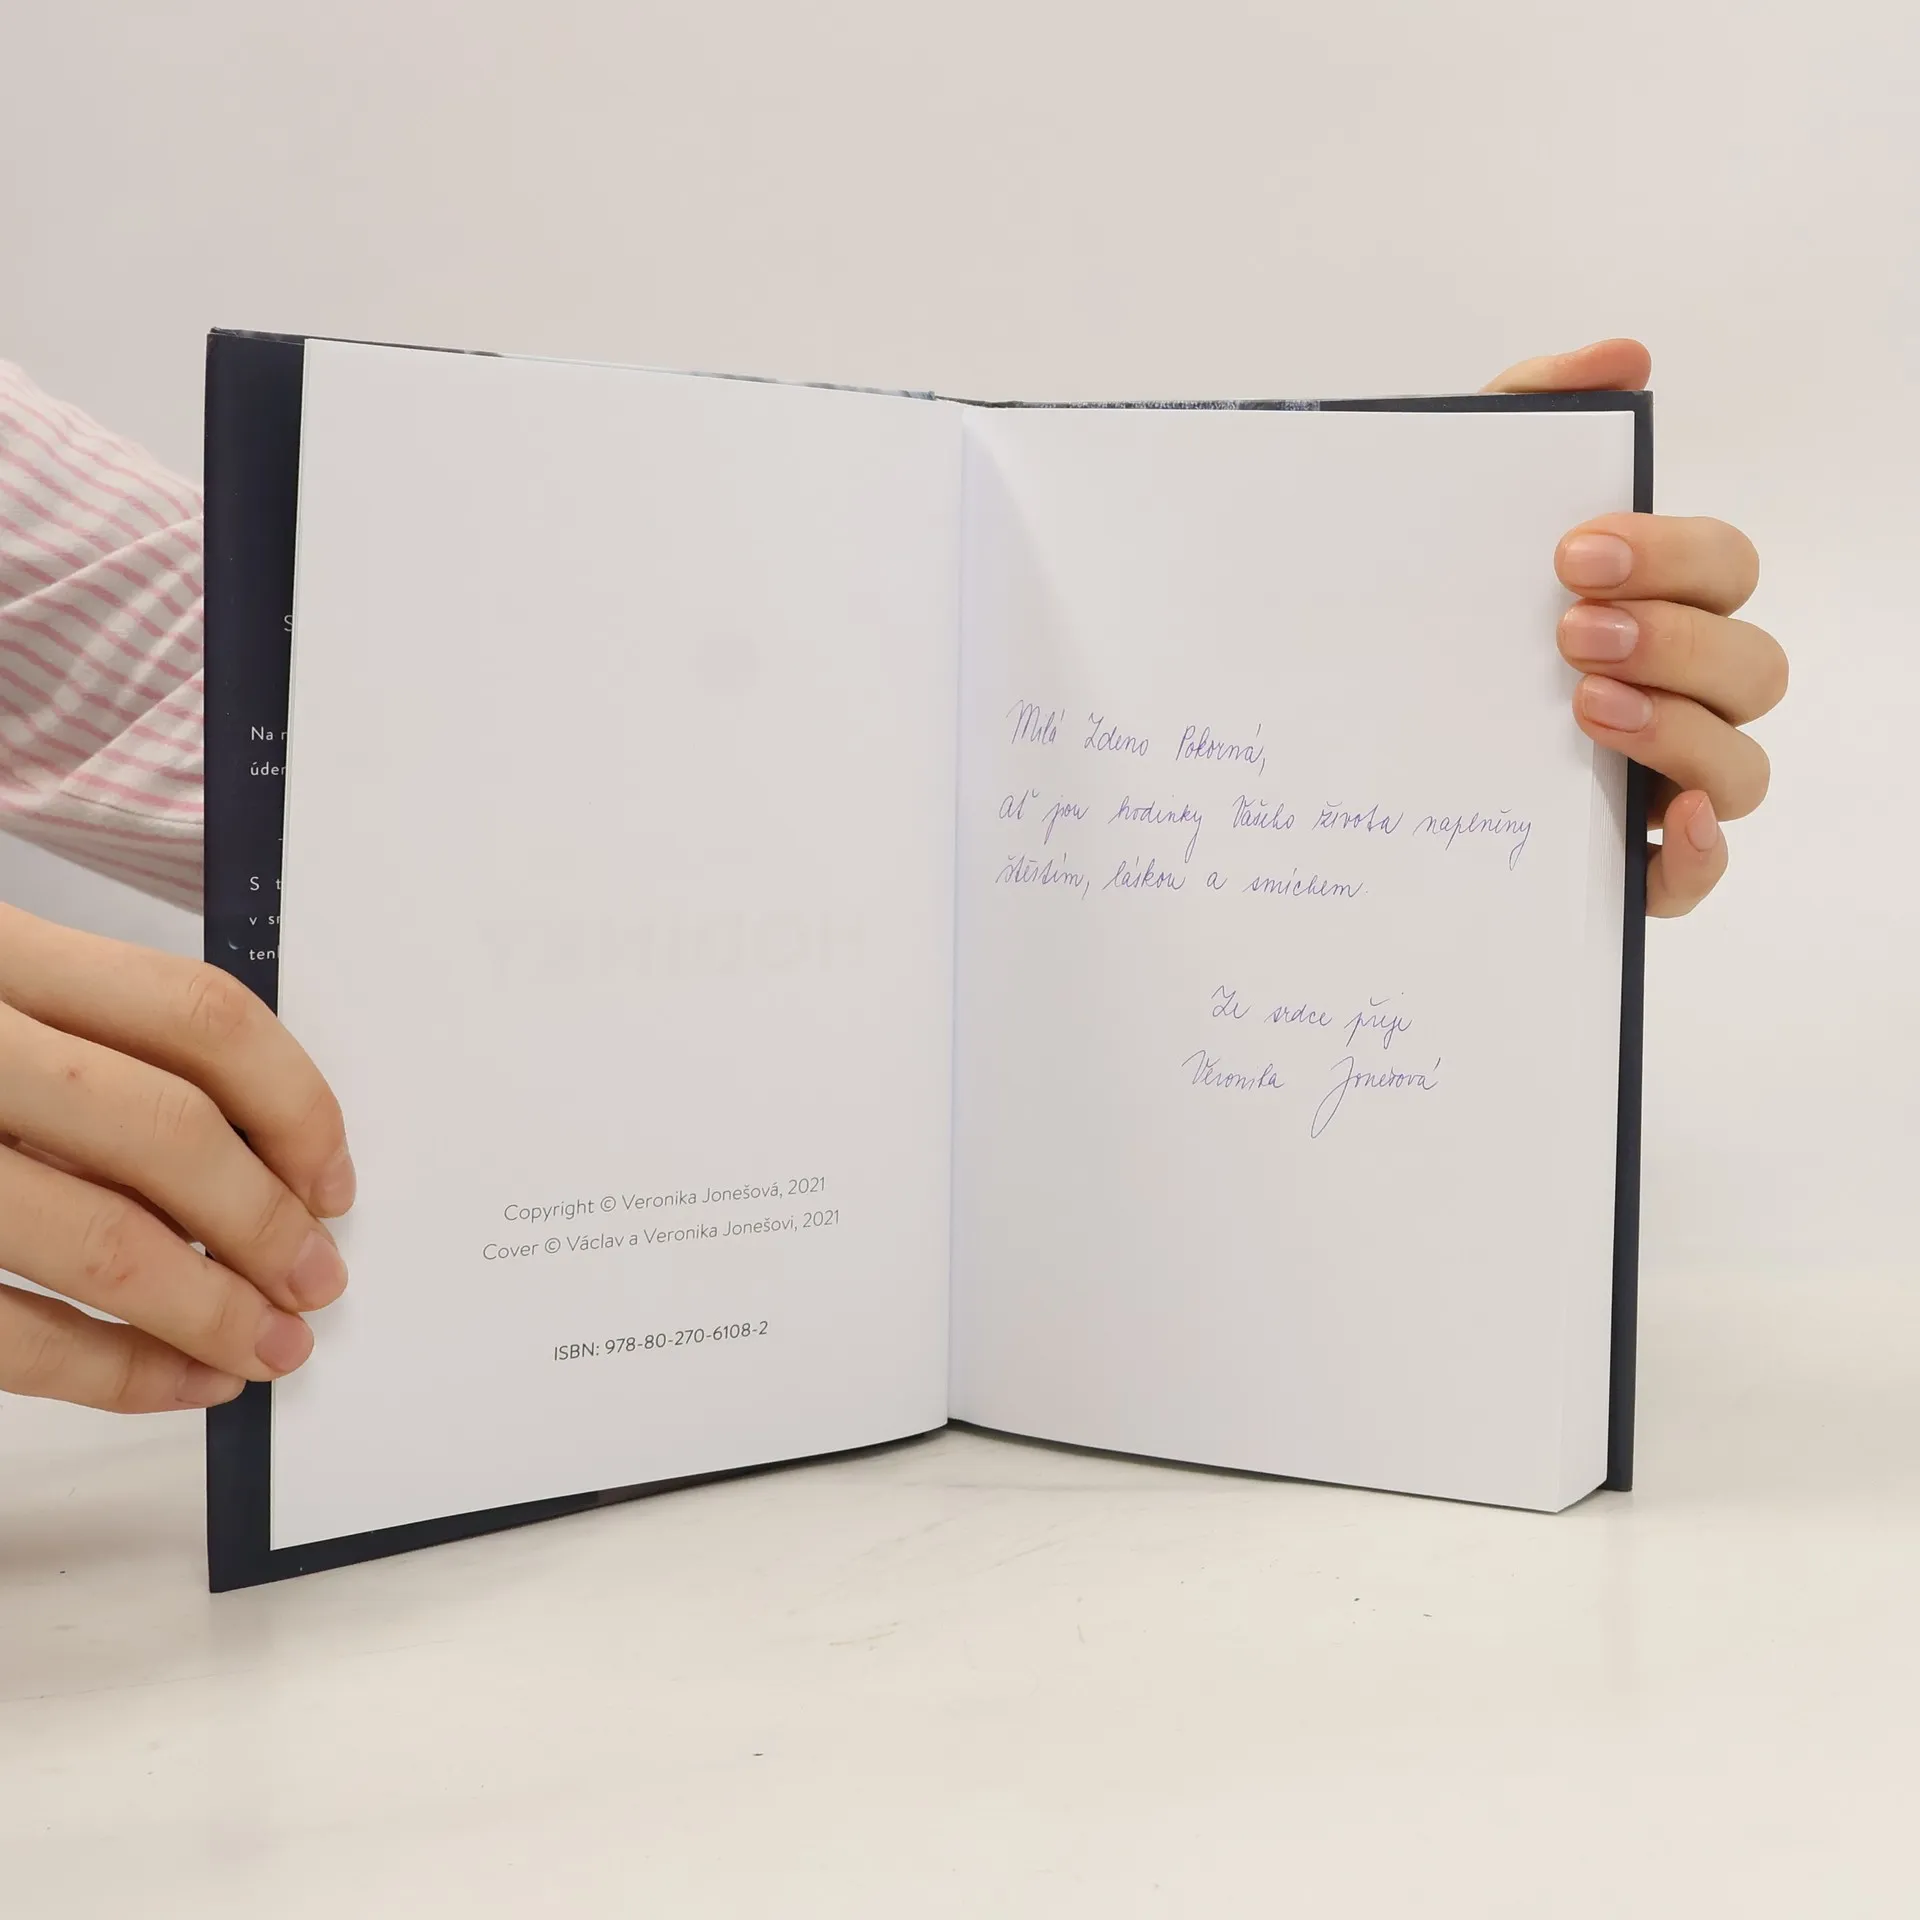 S
Na r
úder
S t
v sr
ten
HODINKY
Copyright © Veronika Jonešová, 2021
Cover © Václav a Veronika Jonešovi, 2021
ISBN: 978-80-270-6108-2
Milá Zdeno Pokorná,
ať jsou hodinky Vašeho života naplněny
štěstím, láskou a smíchem.
Ze srdce přeje
Veronika Jonešová